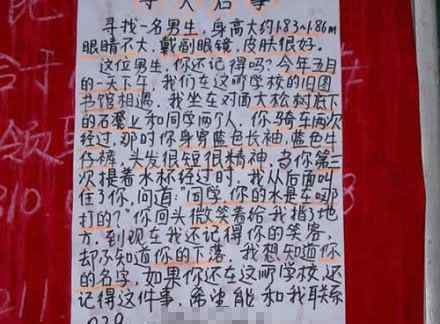 寻人启事
寻找一名男生,身高大约1.83~1.86m
眼睛不大,戴副眼镜,皮肤很好。
这位男生,你还记得吗?今年五月
的一天下午,我们在这所学校的旧图
书馆相遇,我坐在对面大松树底下
的石凳上和同学两个人,你骑车两次
经过,那时你身穿蓝色长袖,蓝色牛
仔裤,头发很短很精神,当你第三
次提着水杯经过时,我从后面叫
住了你,问道:"同学,你的水是在哪
打的?"你回头微笑着给我指了地
方,到现在我还记得你的笑容,
却不知道你的下落,我想知道你
的名字,如果你还在这所学校,还
记得这件事,希望能和我联系
029